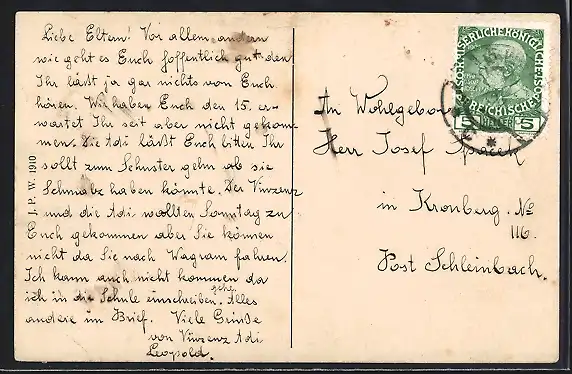 Liebe Eltern! Vor allem andern
wie geht es Euch hoffentlich gut den
Ihr läßt ja gar nichts von Euch
hören. Wir haben Euch den 15. er-
wartet Ihr seit aber nicht gekom-
men. Die Adi läßt Euch bitten Ihr
sollt zum Schuster gehn ab sie
Schmalz haben könnte. Der Vinzenz
und die Adi wollten Sonntag zu
Euch gekommen aber Sie können
nicht da Sie nach Wagram fahren.
Ich kann auch nicht kommen da
ich in die Schule einschreiben gehe. Alles
andere im Brief. Viele Grüße
von Vinzenz Adi
Leopold.
J. P. W. 1910
KAISERLICHE KÖNIGLICHE
REICHISCHE
5 5
An Wohlgeboren
Herr Josef
in Kronberg. No
116.
Post Schleinbach.